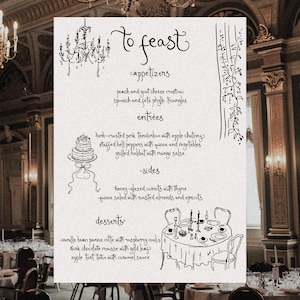 to feast
appetizers
peach and goat cheese crostini
spinach and feta phyllo triangles
entrées
herb-crusted pork tenderloin with apple chutney
stuffed bell peppers with quinoa and vegetables
grilled halibut with mango salsa
sides
honey-glazed carrots with thyme
quinoa salad with roasted almonds and apricots
desserts
vanilla bean panna cotta with raspberry coulis
dark chocolate mousse with gold leaf
apple tart tatin with caramel sauce